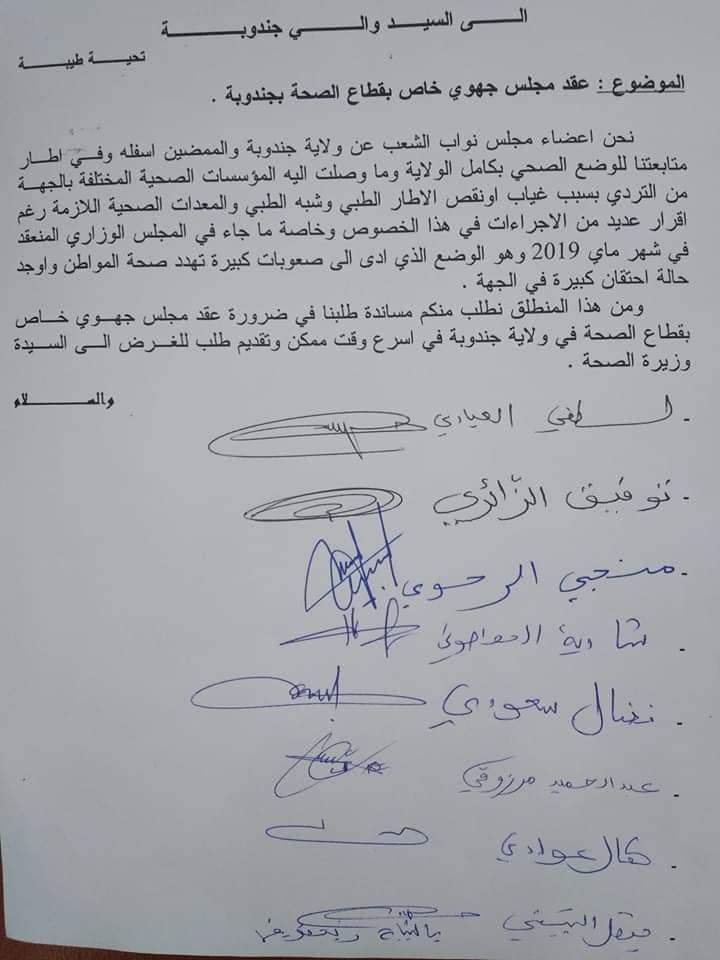 الى السيد والي جندوبة
تحية طيبة
الموضوع : عقد مجلس جهوي خاص بقطاع الصحة بجندوبة .
نحن اعضاء مجلس نواب الشعب عن ولاية جندوبة والممضين اسفله وفي اطار
متابعتنا للوضع الصحي بكامل الولاية وما وصلت اليه المؤسسات الصحية المختلفة بالجهة
من التردي بسبب غياب اونقص الاطار الطبي وشبه الطبي والمعدات الصحية اللازمة رغم
اقرار عديد من الاجراءات في هذا الخصوص وخاصة ما جاء في المجلس الوزاري المنعقد
في شهر ماي 2019 وهو الوضع الذي ادى الى صعوبات كبيرة تهدد صحة المواطن واوجد
حالة احتقان كبيرة في الجهة .
ومن هذا المنطلق نطلب منكم مساندة طلبنا في ضرورة عقد مجلس جهوي خاص
بقطاع الصحة في ولاية جندوبة في اسرع وقت ممكن وتقديم طلب للغرض الى السيدة
وزيرة الصحة .
والسلام
- لطفي العيادي
- توفيق الزّائري
- منجي الرحوي
- شادية
- نضال سعودي
- عبد الحميد مرزوقي
- كمال عوادي
- بالنيابة